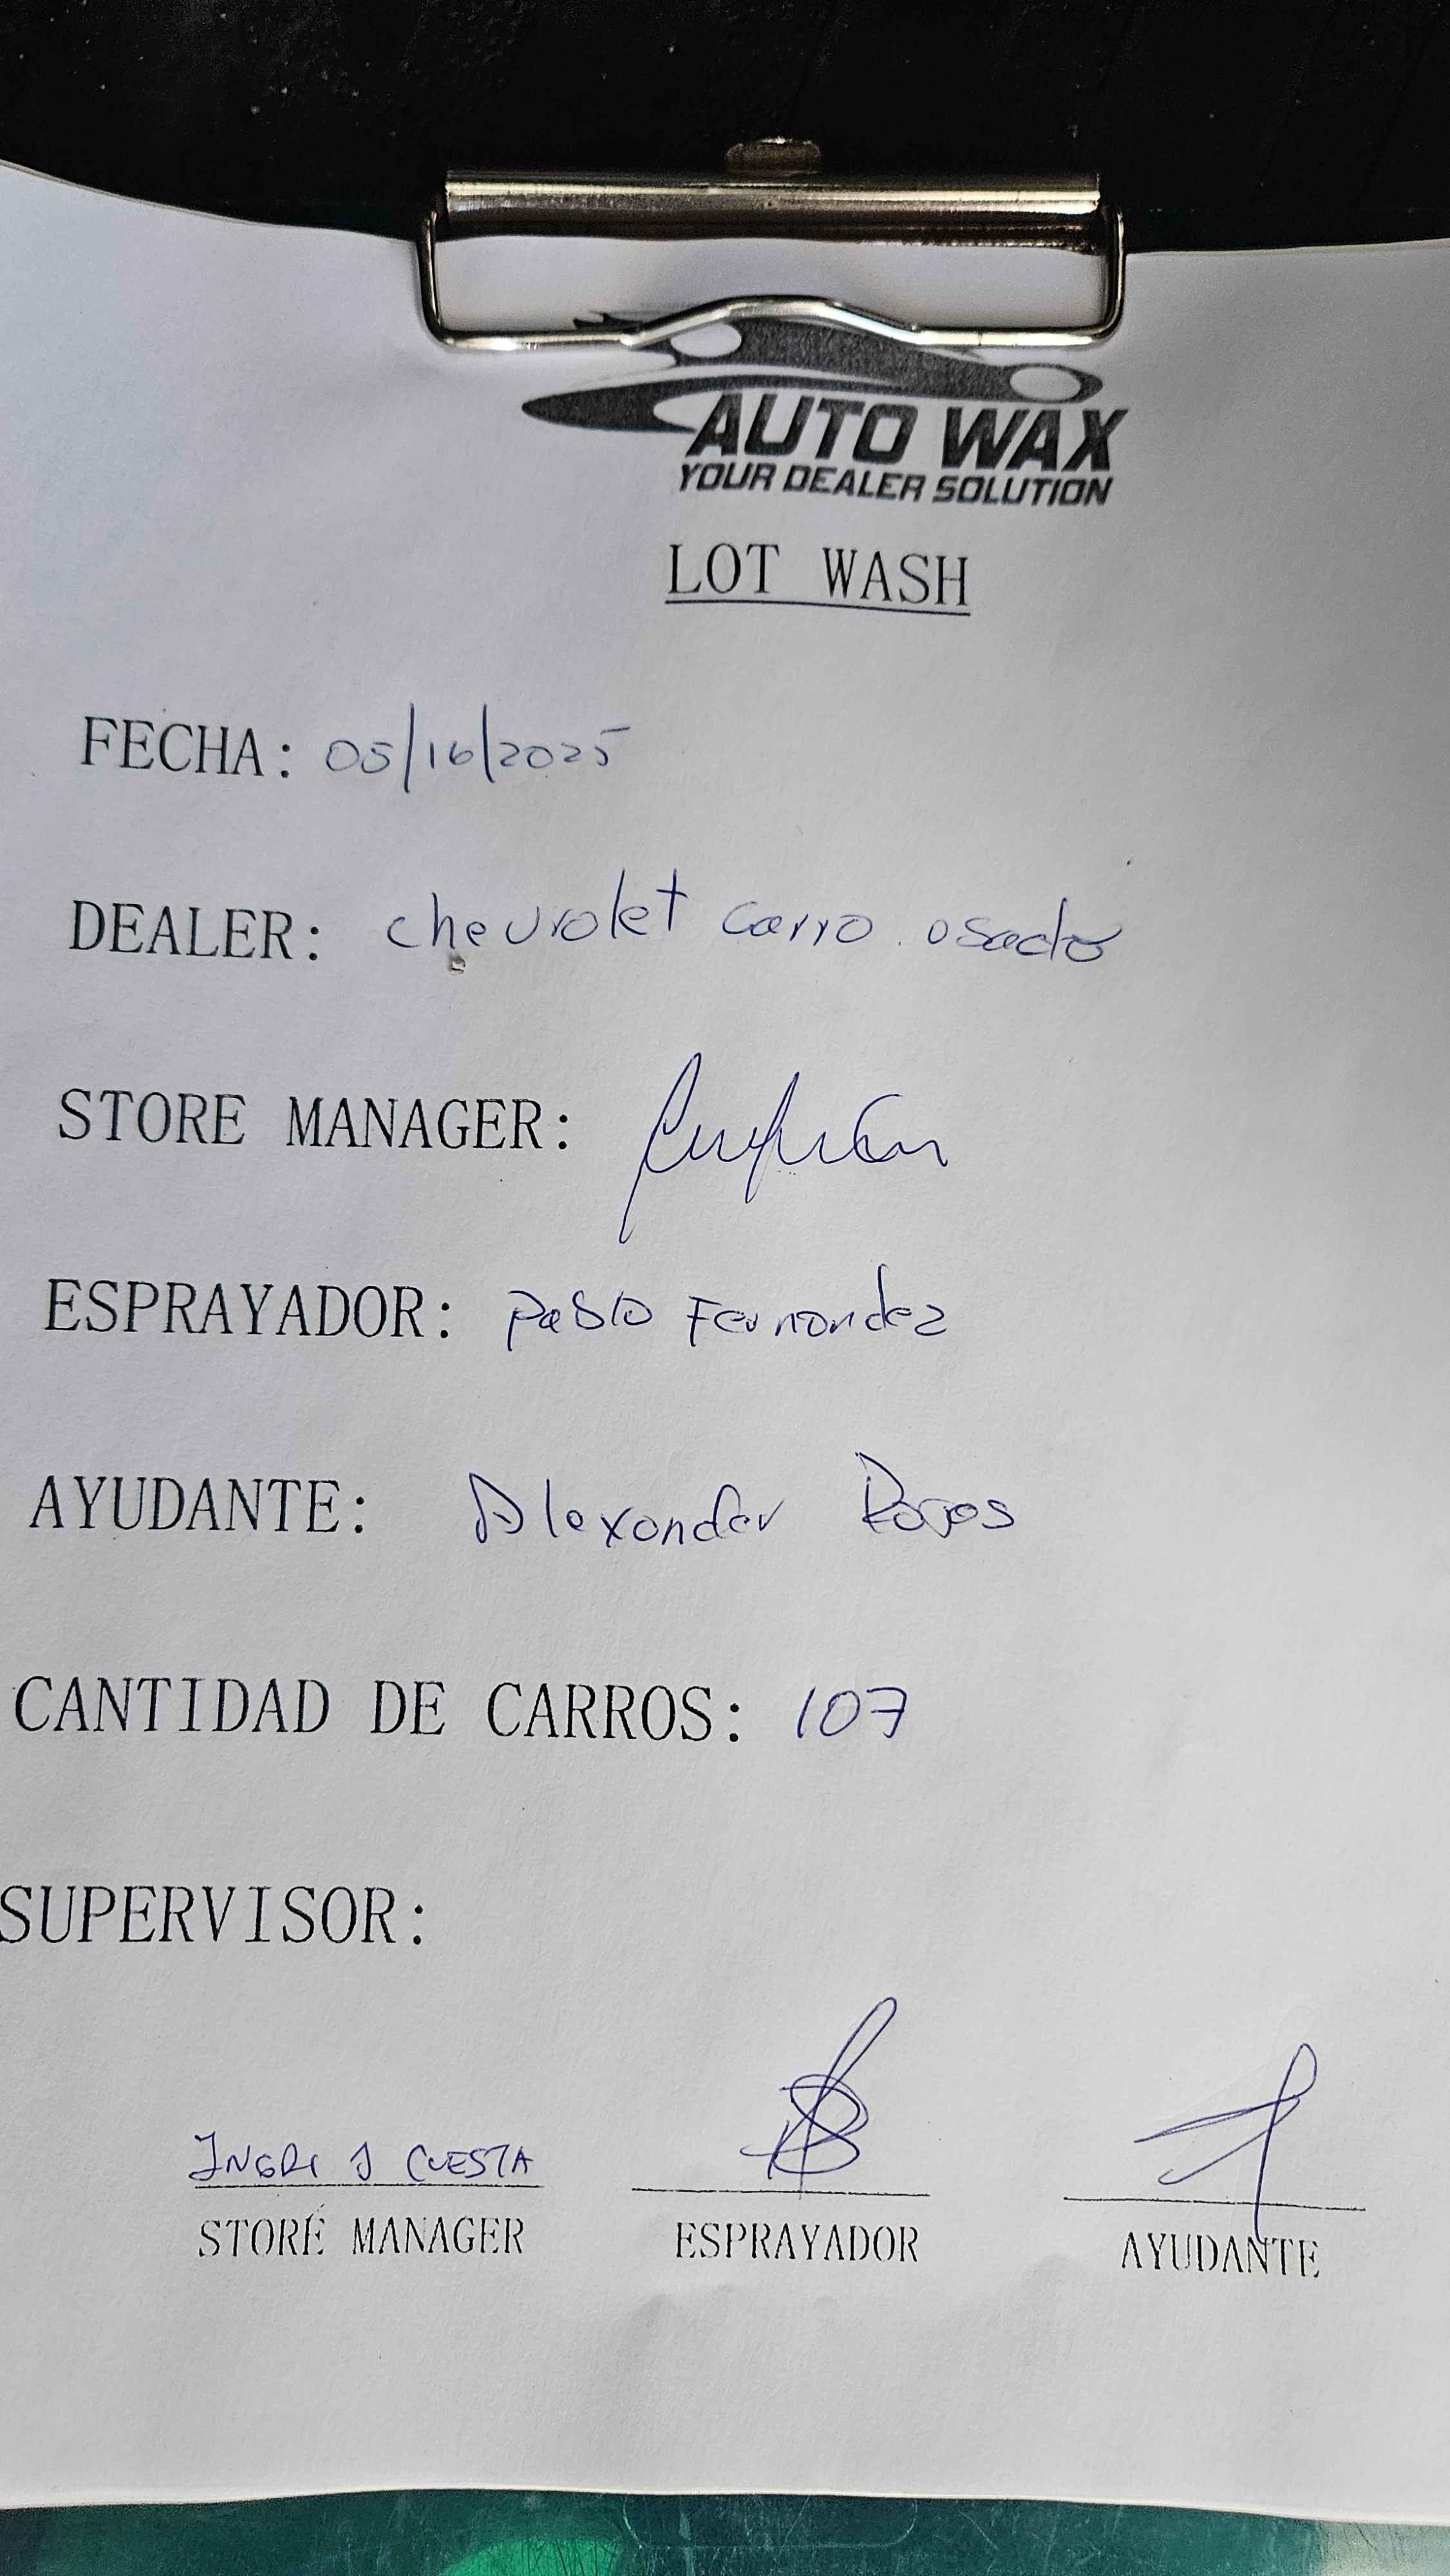 AUTO WAX
YOUR DEALER SOLUTION
LOT WASH
FECHA: 05/16/2025
DEALER: chevrolet carro osado
STORE MANAGER:
ESPRAYADOR: Pablo Fernandez
AYUDANTE: Alexander Rojas
CANTIDAD DE CARROS: 107
SUPERVISOR:
INGRI J CUESTA
STORE MANAGER ESPRAYADOR AYUDANTE